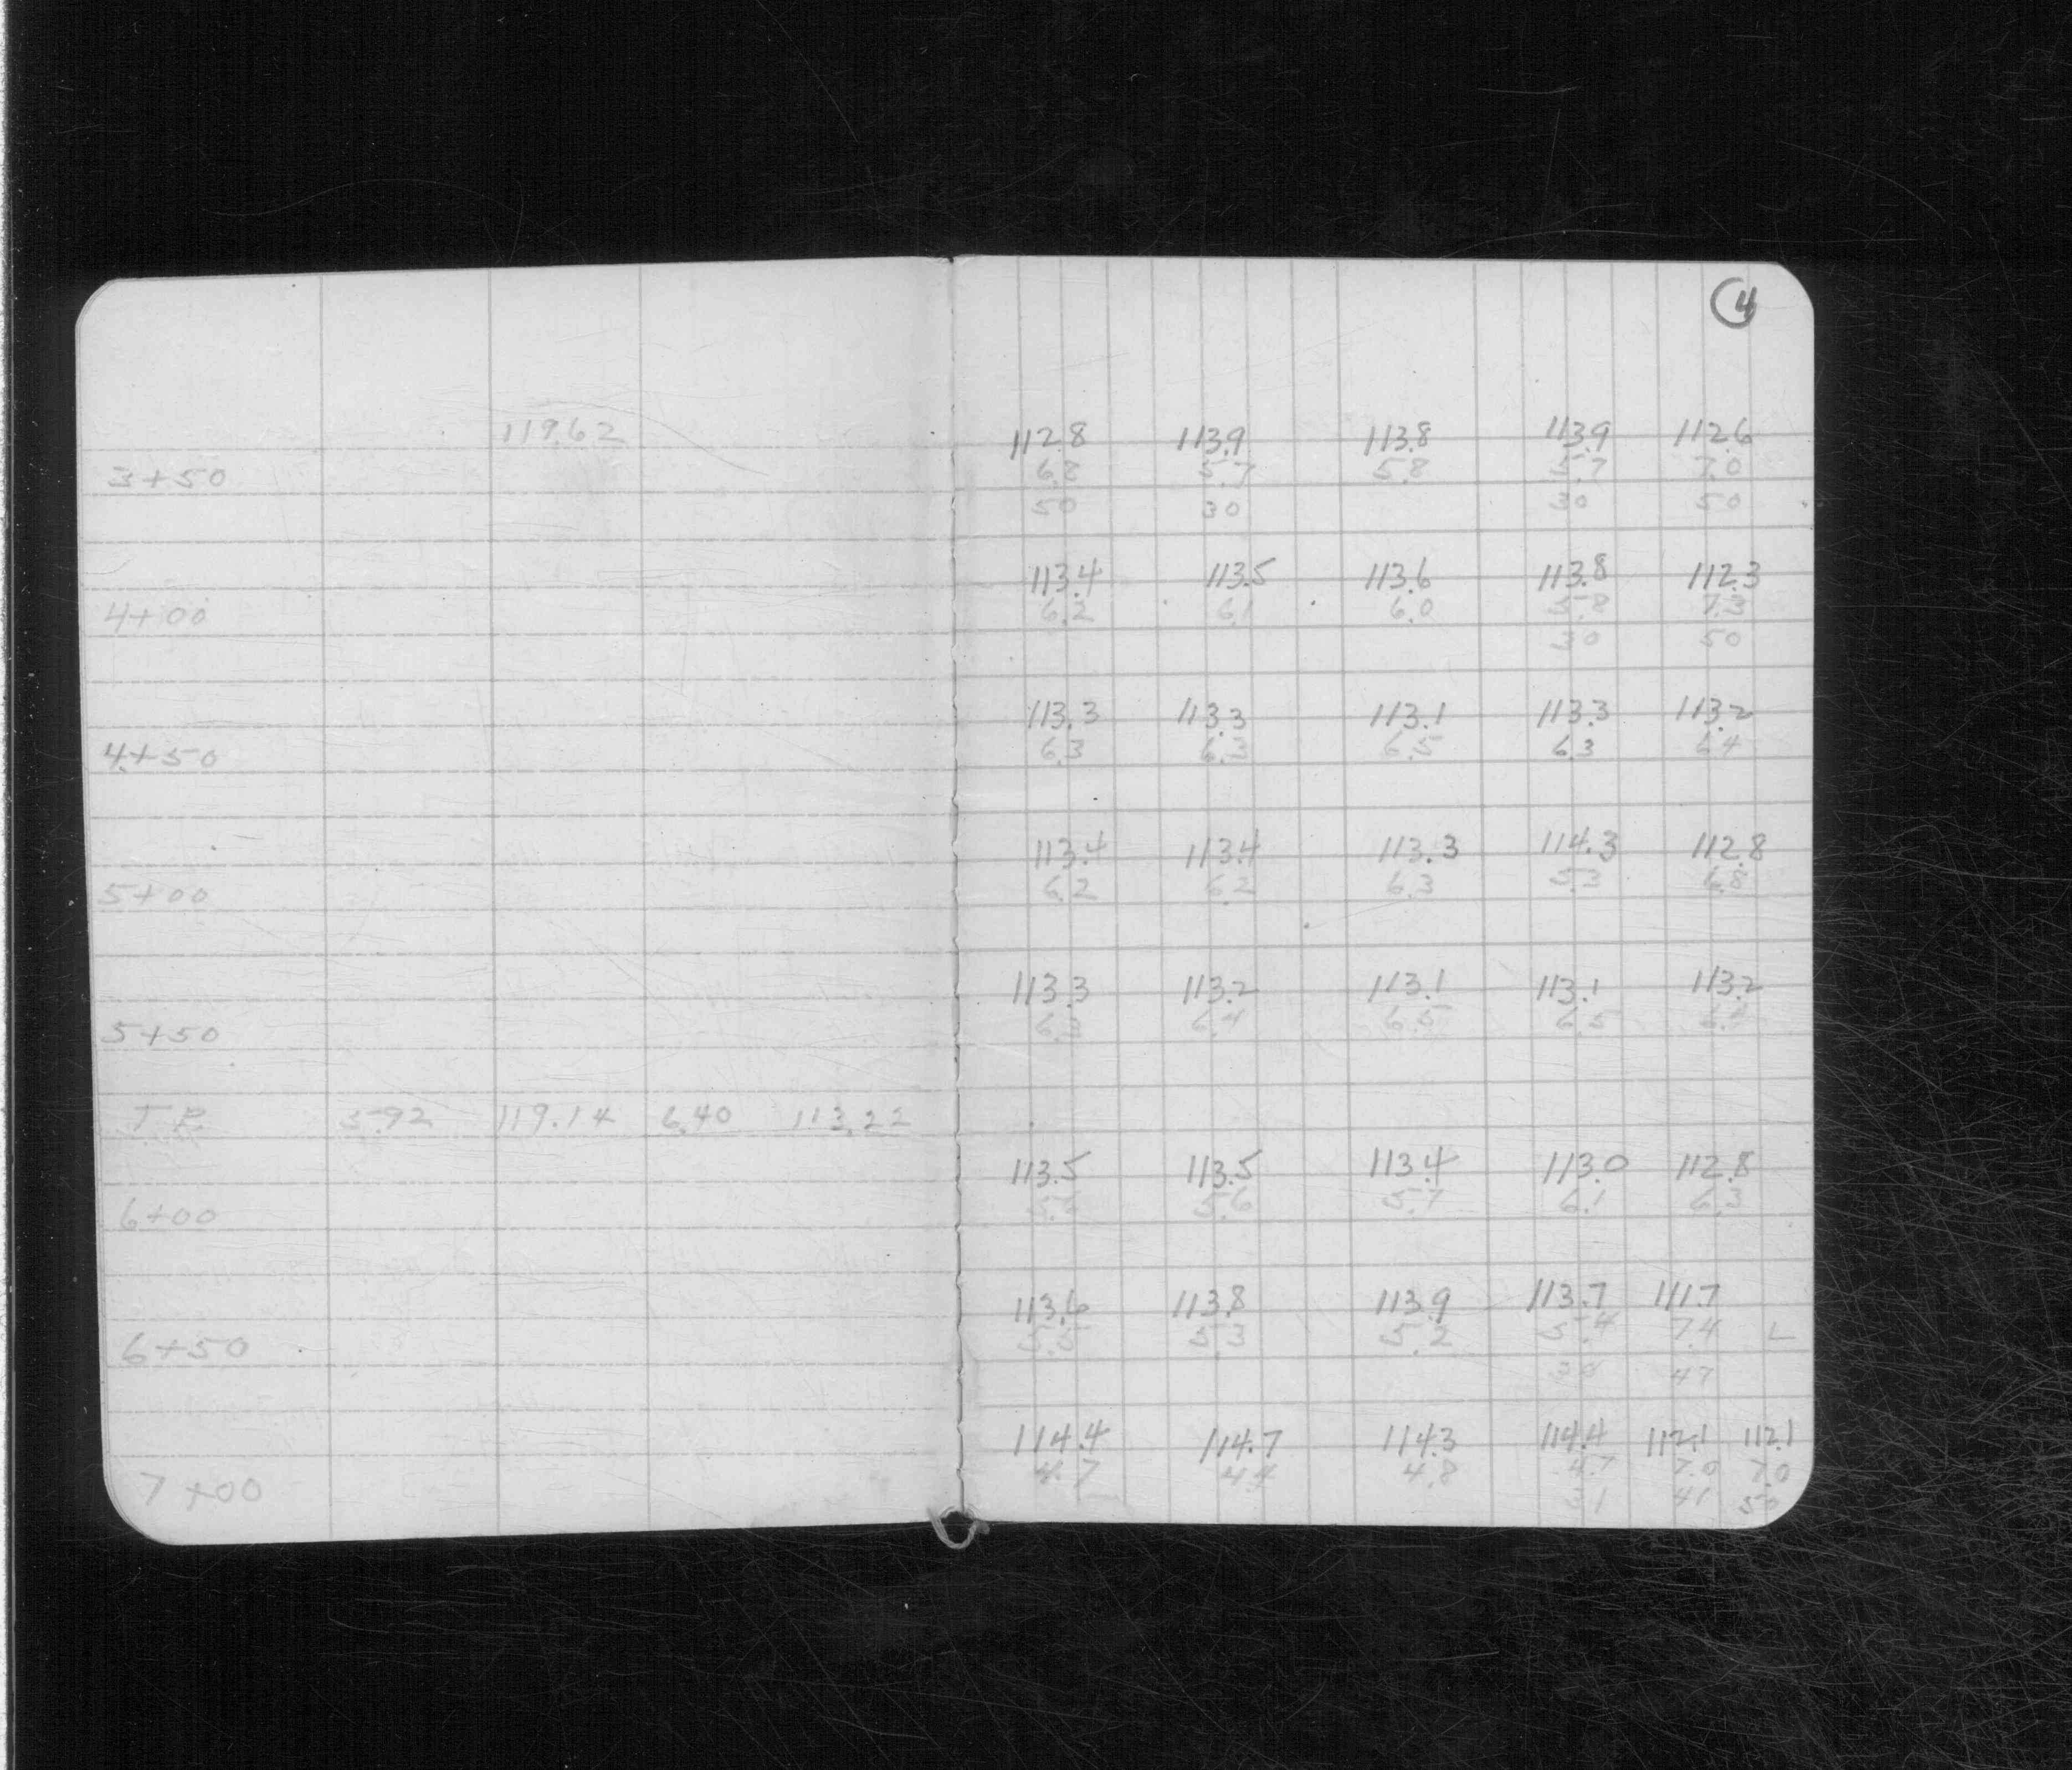 4
119.62 112.8 113.9 113.8 113.9 112.6
3+50 6.8 5.7 5.8 5.7 7.0
50 30 30 50
113.4 113.5 113.6 113.8 112.3
4+00 6.2 6.1 6.0 5.8 7.3
30 50
113.3 113.3 113.1 113.3 113.2
4+50 6.3 6.3 6.5 6.3 6.4
113.4 113.4 113.3 114.3 112.8
5+00 6.2 6.2 6.3 5.3 6.8
113.3 113.2 113.1 113.1 113.2
5+50 6.3 6.4 6.5 6.5 6.4
T.P. 5.92 119.14 6.40 113.22
113.5 113.5 113.4 113.0 112.8
6+00 5.6 5.6 5.7 6.1 6.3
113.6 113.8 113.9 113.7 111.7
6+50 5.5 5.3 5.2 5.4 7.4 L
47
114.4 114.7 114.3 114.4 112.1 112.1
7+00 4.7 4.4 4.8 4.7 7.0 7.0
31 41 50